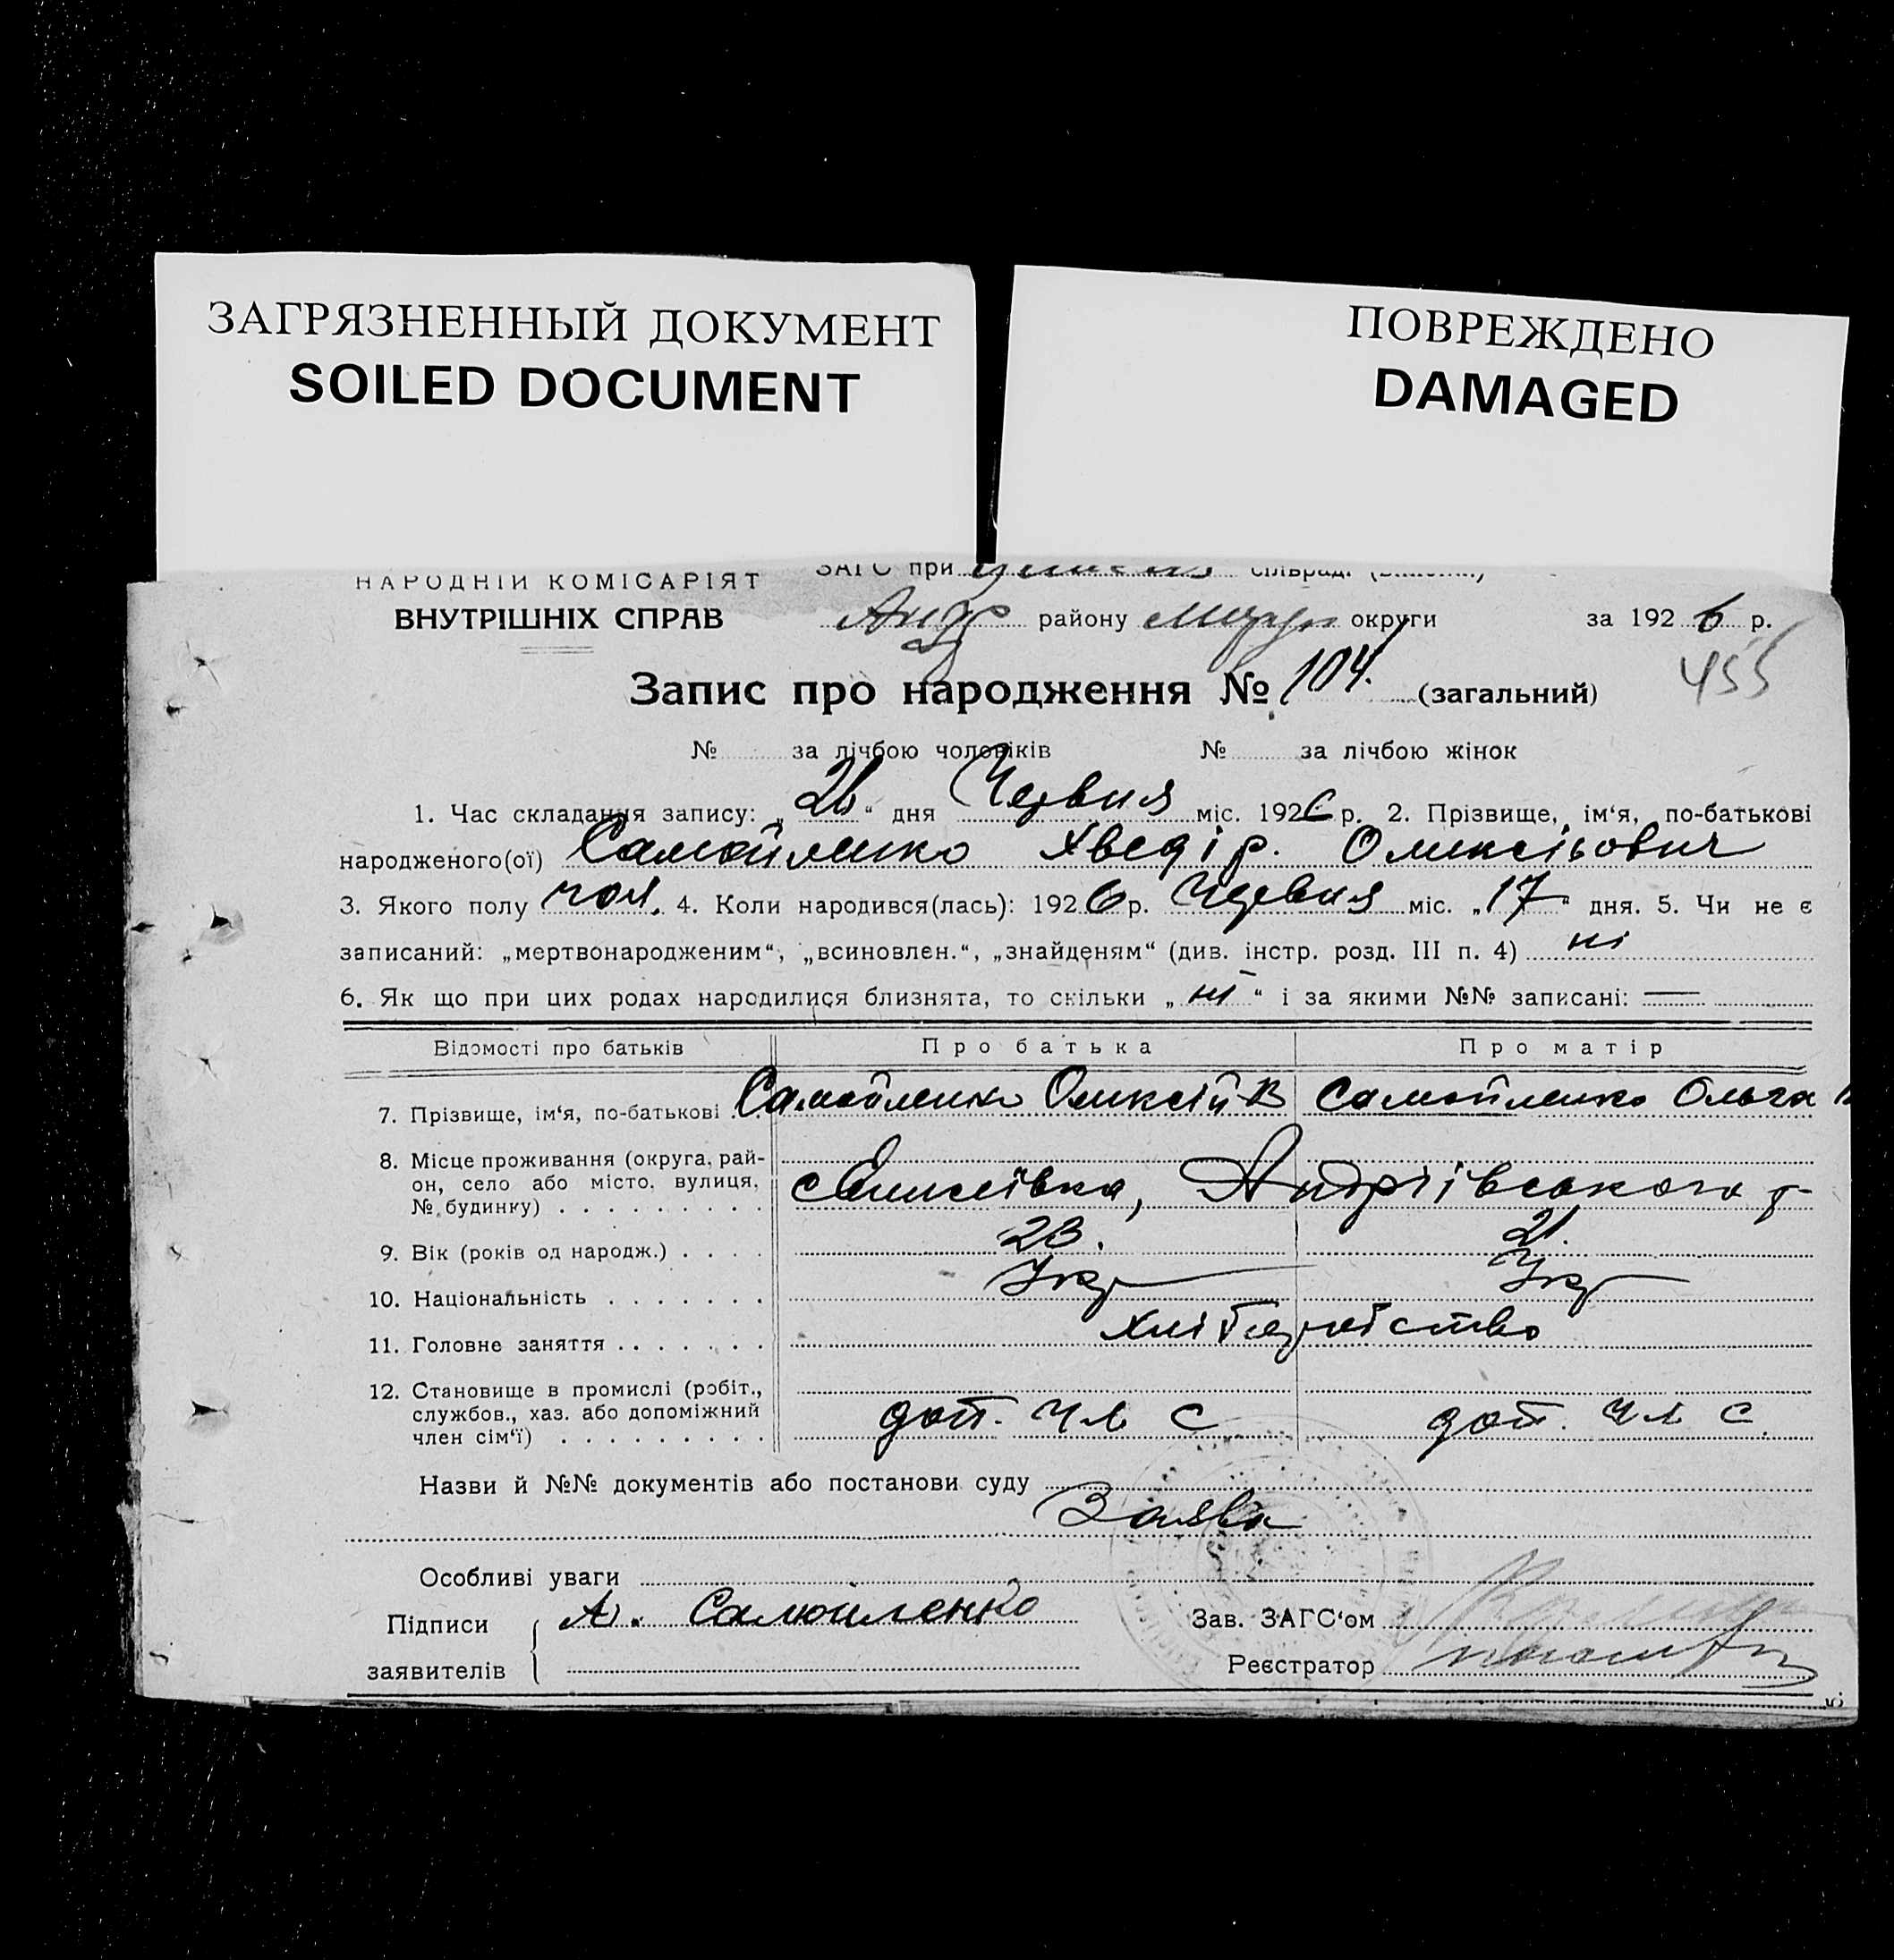 ЗАГРЯЗНЕННЫЙ ДОКУМЕНТ
SOILED DOCUMENT
ПОВРЕЖДЕНО
DAMAGED
НАРОДНІЙ КОМІСАРІЯТ
ВНУТРІШНІХ СПРАВ
ЗАГС при сільраді
Андр району округи за 1926 р.
455
Запис про народження № 104. (загальний)
№ за лічбою чоловіків № за лічбою жінок
1. Час складання запису: „26“ дня Червня міс. 1926 р. 2. Прізвище, ім‘я, по-батькові
народженого(ої) Самойленко Хведір. Олексійович
3. Якого полу чол. 4. Коли народився(лась): 1926 р. Червня міс. „17“ дня. 5. Чи не є
записаний: „мертвонародженим“, „всиновлен.“, „знайденям“ (див. інстр. розд. III п. 4) ні
6. Як що при цих родах народилися близнята, то скільки „ні“ і за якими №№ записані: —
Відомості про батьків Про батька Про матір
7. Прізвище, ім‘я, по-батькові Самойленко Олексій В Самойленко Ольга
8. Місце проживання (округа, рай-
он, село або місто, вулиця,
№ будинку) Андріївського р
9. Вік (років од народж.) 23. 21.
10. Національність Укр Укр
11. Головне заняття хліборобство
12. Становище в промислі (робіт.,
службов., хаз. або допоміжний
член сім‘ї) доп. чл с доп. чл с
Назви й №№ документів або постанови суду
Заява
Особливі уваги
Підписи А. Самойленко Зав. ЗАГС‘ом
заявителів Реєстратор